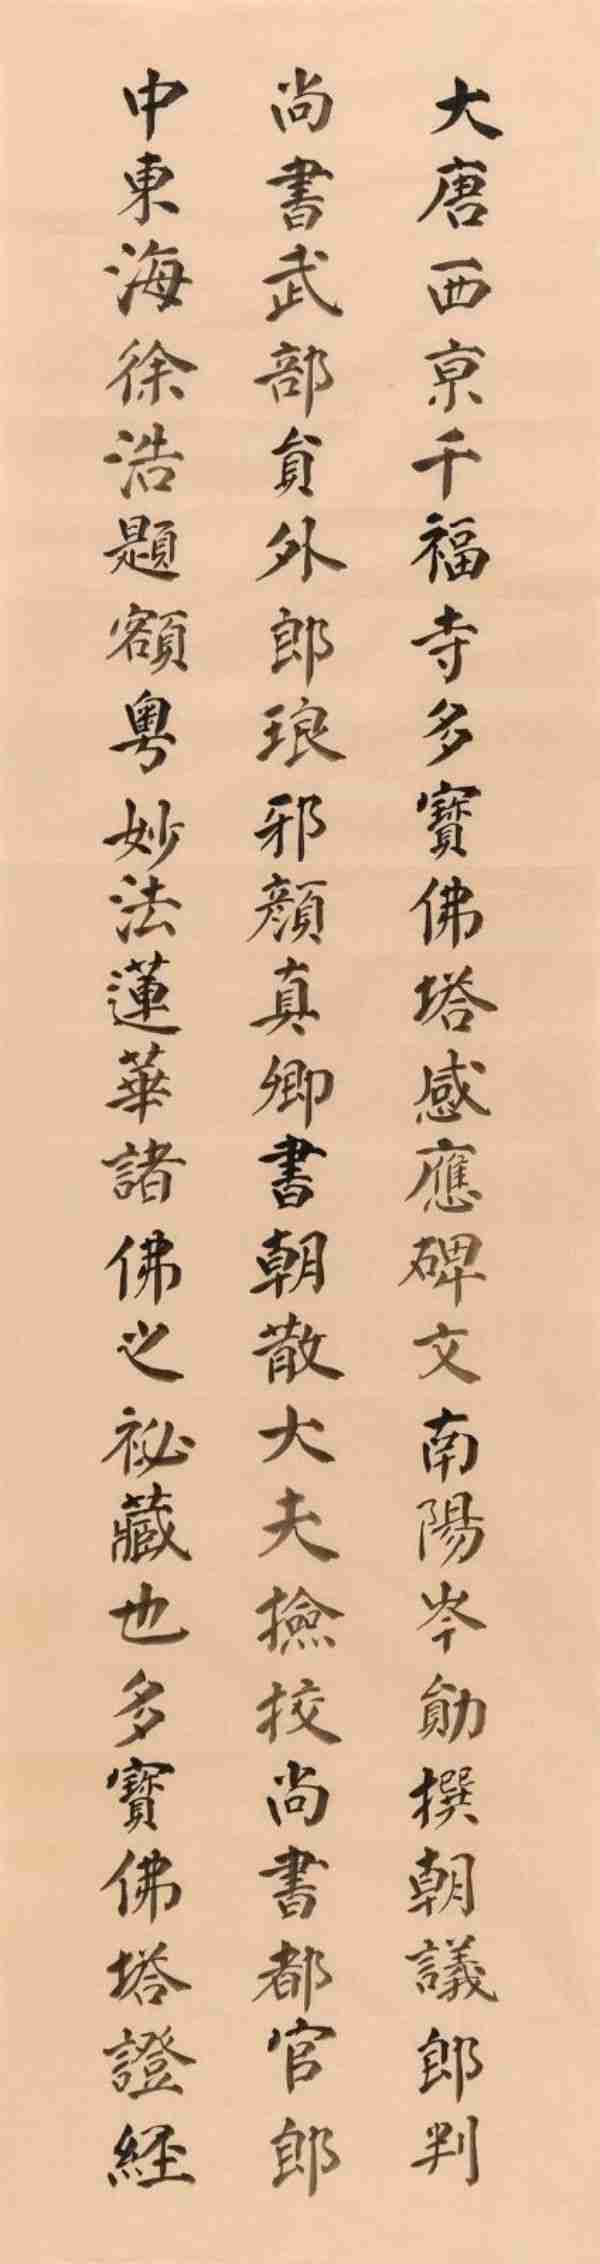 大唐西京千福寺多寶佛塔感應碑文南陽岑勛撰朝議郎判
尚書武部貟外郎琅邪顏真卿書朝散大夫撿挍尚書都官郎
中東海徐浩題額粵妙法蓮華諸佛之祕藏也多寶佛塔證経